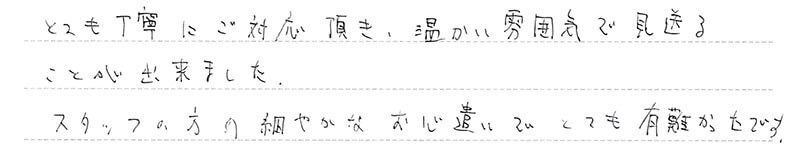 とても丁寧にご対応頂き、温かい雰囲気で見送る
ことが出来ました。
スタッフの方の細やかなお心遣いがとても有難かったです。